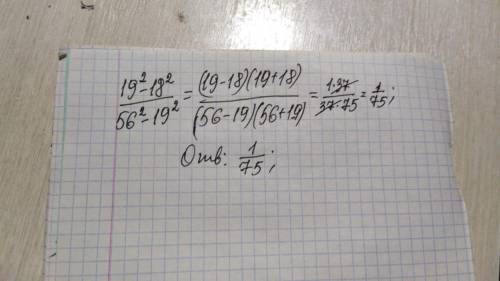 19²-18² / 56²-19² = (19-18)(19+18) / (56-19)(56+19) = 1·37 / 37·75 = 1/75;
Отв: 1/75;